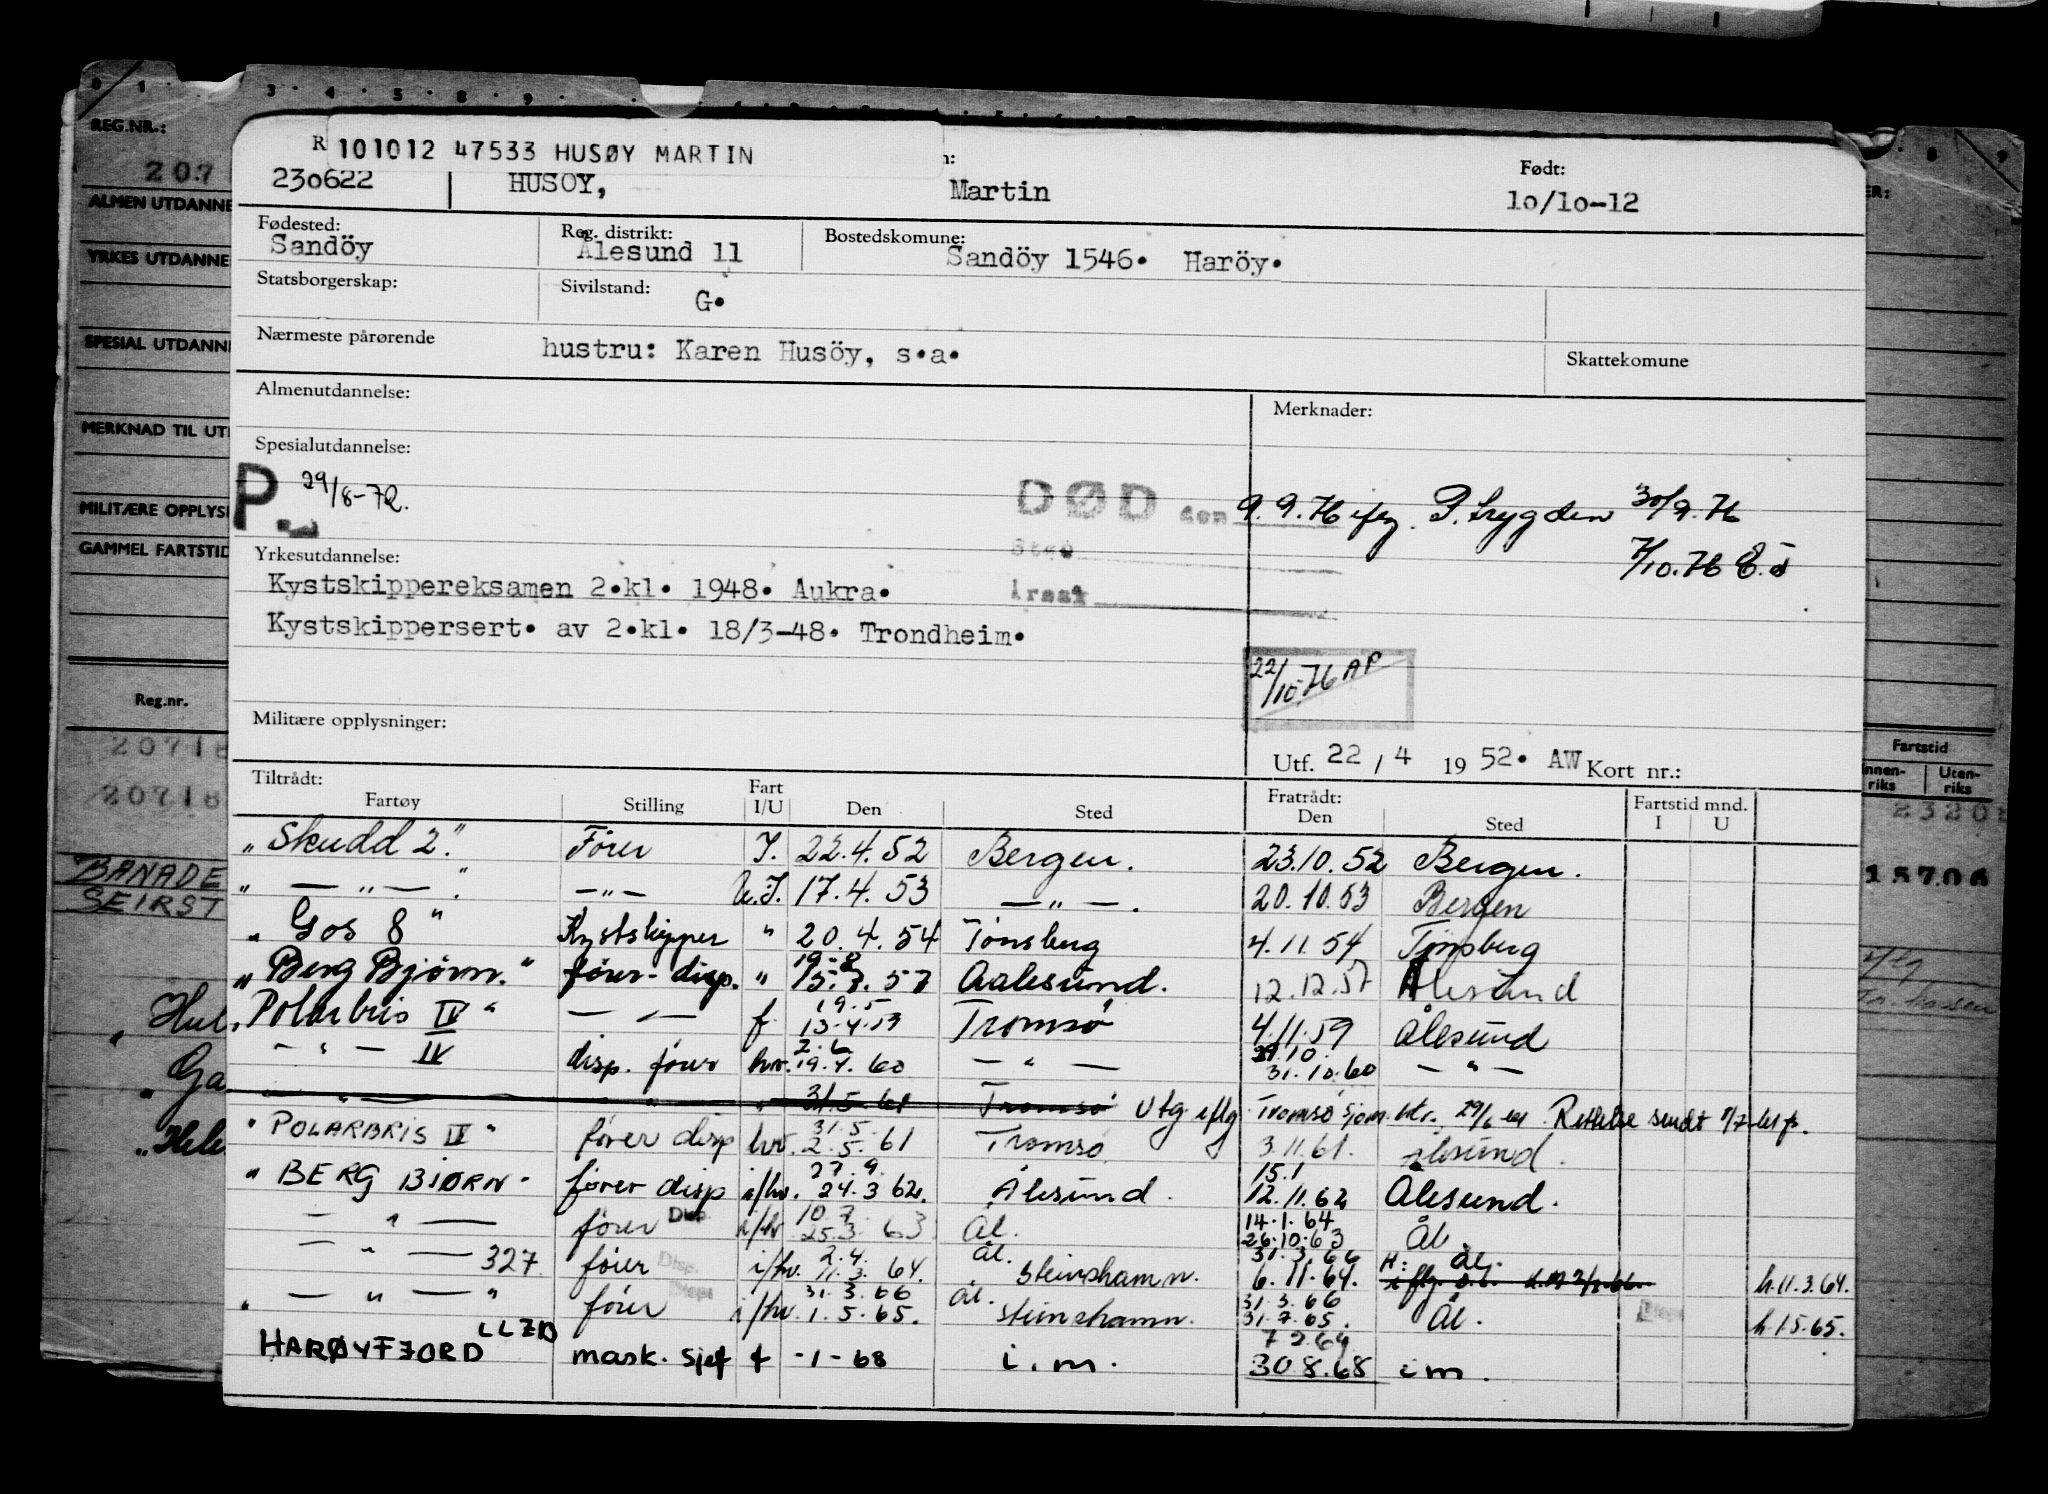 REG.NR.:
207
ALMEN UTDANNE
YRKES UTDANNE
SPESIAL UTDANN
MERKNAD TIL UT
MILITÆRE OPPLYS
GAMMEL FARTSTID
Reg.nr.
20718
20718
BANADE
SEIRST
101012 47533 HUSØY MARTIN
230622 HUSOY, Martin
Født:
10/10-12
Fødested: Sandöy
Reg. distrikt: Ålesund 11
Bostedskommune: Sandöy 1546. Haröy.
Statsborgerskap:
Sivilstand: G.
Nærmeste pårørende hustru: Karen Husöy, s.a.
Skattekomune
Almenutdannelse:
Merknader:
Spesialutdannelse:
P. 29/8-72.
DØD den 9.9.76 iflg. P. trygden 30/9.76
Sted
7/10.76
Årsak
Yrkesutdannelse:
Kystskippereksamen 2.kl. 1948. Aukra.
Kystskippersert. av 2.kl. 18/3-48. Trondheim.
22/10-76 AP
Militære opplysninger:
Utf. 22 / 4 1952. AW Kort nr.:
Fartstid
Innen-riks Uten-riks
Tiltrådt: Fartøy Stilling Fart I/U Den Sted Fratrådt: Den Sted Fartstid mnd. I U
"Skudd 2" Fører I. 22.4.52 Bergen. 23.10.52 Bergen.
" — " — " — " — U.I. 17.4.53 — " — . 20.10.53 Bergen
"Gos 8" Kystskipper " 20.4.54 Tønsberg 4.11.54 Tønsberg
"Berg Bjørn" fører-disp. " 19-8 15.7.57 Aalesund. 12.12.57 Ålesund
"Polarbris IV" — " — f 19.5 13.4.59 Tromsø 4.11.59 Ålesund
— " — IV disp. fører hv. 2.6 19.4.60 — " — 29.10. 31.10.60 — " —
— " — " " 31.5.61 Tromsø Utg iflg Tromsø Sjøm. ktr. 29/6 61 Rettelse sendt
"POLARBRIS IV" fører disp hv. 31.5. 2.5.61 Tromsø 3.11.61. Ålesund.
"BERG BJØRN" fører disp i/hv. 27.9. 24.3 62. Ålesund. 15.1 12.11.62 Ålesund.
— " — fører Disp. i/hv 10.7. 25.3 63 Ål. 14.1.64 26.10.63 Ål.
— " — 327 fører Disp. i/hv. 2.4. 11.3. 64. Ål. Steinshamn. 31.3.66 6.11.64. H: Ål. h.11.3.64.
" — " — " fører Disp. i/hv. 31.3.66 1.5.65. Ål. Steinshamn. 31.3.66 31.7.65. Ål. h.1.5.65.
HARØYFJORD LLZD mask. sjef f -1-68 i.m. 7 2.69 30.8.68 im.